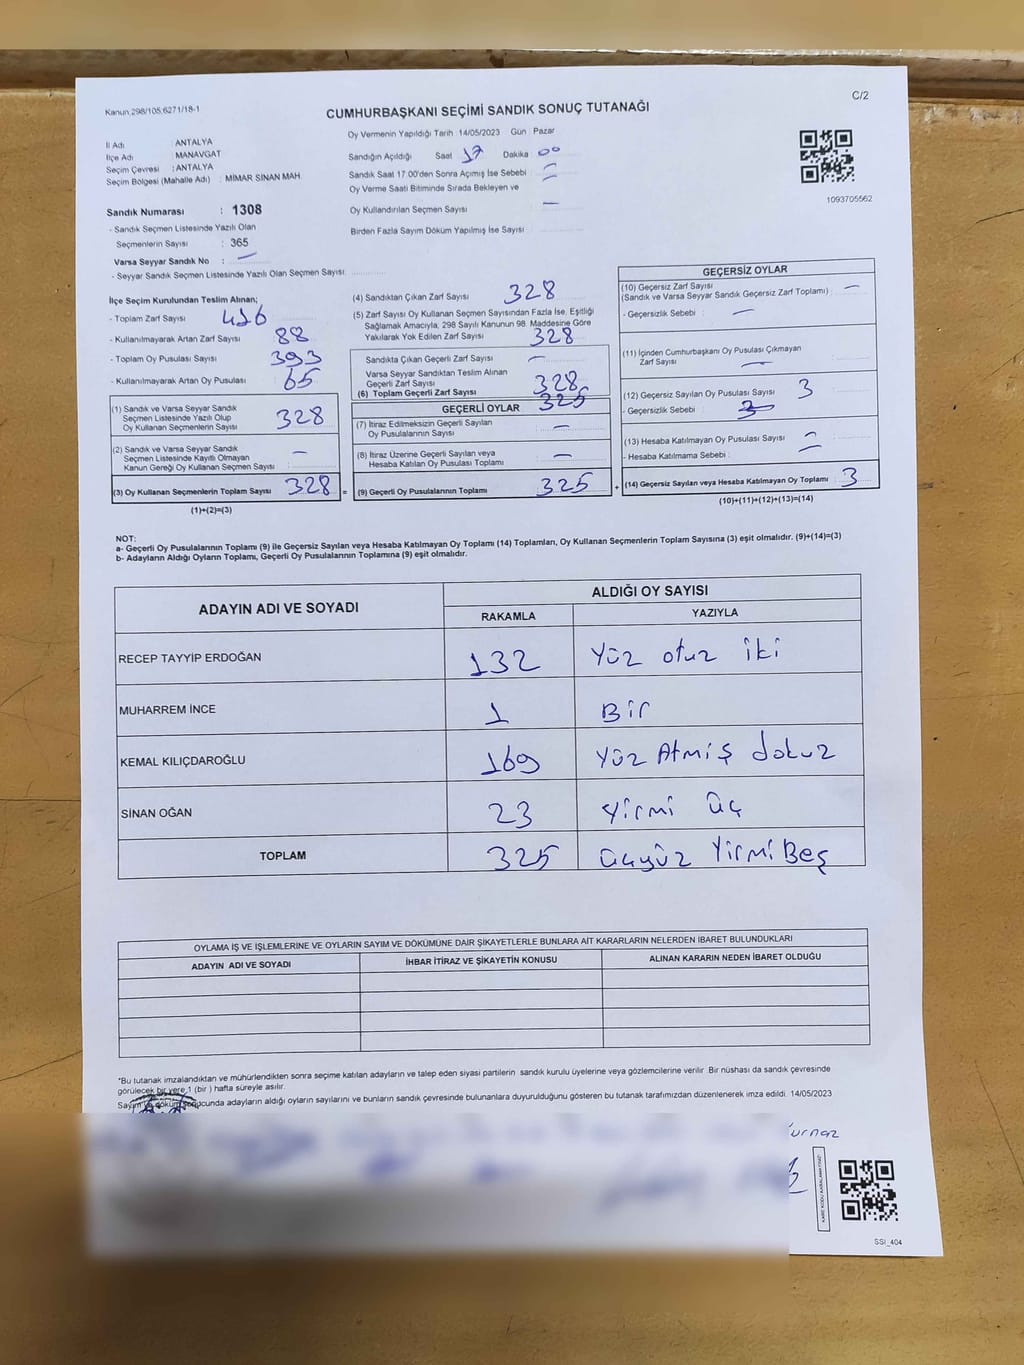 Kanun 298/105 6271/18-1
C/2
CUMHURBAŞKANI SEÇİMİ SANDIK SONUÇ TUTANAĞI
İl Adı : ANTALYA
İlçe Adı : MANAVGAT
Seçim Çevresi : ANTALYA
Seçim Bölgesi (Mahalle Adı) : MİMAR SİNAN MAH.
Sandık Numarası : 1308
- Sandık Seçmen Listesinde Yazılı Olan
Seçmenlerin Sayısı : 365
Varsa Seyyar Sandık No : —
- Seyyar Sandık Seçmen Listesinde Yazılı Olan Seçmen Sayısı
Oy Vermenin Yapıldığı Tarih 14/05/2023 Gün : Pazar
Sandığın Açıldığı Saat 17 Dakika 00
Sandık Saat 17.00'den Sonra Açımış İse Sebebi
Oy Verme Saati Bitiminde Sırada Bekleyen ve
Oy Kullandırılan Seçmen Sayısı —
Birden Fazla Sayım Döküm Yapılmış İse Sayısı
1093705562
İlçe Seçim Kurulundan Teslim Alınan;
- Toplam Zarf Sayısı 416
- Kullanılmayarak Artan Zarf Sayısı 88
- Toplam Oy Pusulası Sayısı 393
- Kullanılmayarak Artan Oy Pusulası 65
(1) Sandık ve Varsa Seyyar Sandık
Seçmen Listesinde Yazılı Olup
Oy Kullanan Seçmenlerin Sayısı 328
(2) Sandık ve Varsa Seyyar Sandık
Seçmen Listesinde Kayıtlı Olmayan
Kanun Gereği Oy Kullanan Seçmen Sayısı —
(3) Oy Kullanan Seçmenlerin Toplam Sayısı 328 =
(1)+(2)=(3)
(4) Sandıktan Çıkan Zarf Sayısı 328
(5) Zarf Sayısı Oy Kullanan Seçmen Sayısından Fazla İse, Eşitliği
Sağlamak Amacıyla, 298 Sayılı Kanunun 98. Maddesine Göre
Yakılarak Yok Edilen Zarf Sayısı 328
Sandıkta Çıkan Geçerli Zarf Sayısı —
Varsa Seyyar Sandıktan Teslim Alınan
Geçerli Zarf Sayısı
(6) Toplam Geçerli Zarf Sayısı 328
GEÇERLİ OYLAR 325
(7) İtiraz Edilmeksizin Geçerli Sayılan
Oy Pusulalarının Sayısı —
(8) İtiraz Üzerine Geçerli Sayılan veya
Hesaba Katılan Oy Pusulası Toplamı —
(9) Geçerli Oy Pusulalarının Toplamı 325 +
GEÇERSİZ OYLAR
(10) Geçersiz Zarf Sayısı
(Sandık ve Varsa Seyyar Sandık Geçersiz Zarf Toplamı) —
- Geçersizlik Sebebi : —
(11) İçinden Cumhurbaşkanı Oy Pusulası Çıkmayan
Zarf Sayısı —
(12) Geçersiz Sayılan Oy Pusulası Sayısı 3
- Geçersizlik Sebebi : 3
(13) Hesaba Katılmayan Oy Pusulası Sayısı —
- Hesaba Katılmama Sebebi : —
(14) Geçersiz Sayılan veya Hesaba Katılmayan Oy Toplamı 3
(10)+(11)+(12)+(13)=(14)
NOT:
a- Geçerli Oy Pusulalarının Toplamı (9) ile Geçersiz Sayılan veya Hesaba Katılmayan Oy Toplamı (14) Toplamları, Oy Kullanan Seçmenlerin Toplam Sayısına (3) eşit olmalıdır. (9)+(14)=(3)
b- Adayların Aldığı Oyların Toplamı, Geçerli Oy Pusulalarının Toplamına (9) eşit olmalıdır.
ADAYIN ADI VE SOYADI
ALDIĞI OY SAYISI
RAKAMLA YAZIYLA
RECEP TAYYİP ERDOĞAN 132 Yüz otuz iki
MUHARREM İNCE 1 Bir
KEMAL KILIÇDAROĞLU 169 Yüz Atmiş dokuz
SİNAN OĞAN 23 Yirmi üç
TOPLAM 325 üçyüz YirmiBeş
OYLAMA İŞ VE İŞLEMLERİNE VE OYLARIN SAYIM VE DÖKÜMÜNE DAİR ŞİKAYETLERLE BUNLARA AİT KARARLARIN NELERDEN İBARET BULUNDUKLARI
ADAYIN ADI VE SOYADI İHBAR İTİRAZ VE ŞİKAYETİN KONUSU ALINAN KARARIN NEDEN İBARET OLDUĞU
*Bu tutanak imzalandıktan ve mühürlendikten sonra seçime katılan adayların ve talep eden siyasi partilerin sandık kurulu üyelerine veya gözlemcilerine verilir. Bir nüshası da sandık çevresinde
görülecek bir yere 1 (bir) hafta süreyle asılır.
Sayım ve döküm sonucunda adayların aldığı oyların sayılarını ve bunların sandık çevresinde bulunanlara duyurulduğunu gösteren bu tutanak tarafımızdan düzenlenerek imza edildi. 14/05/2023
SSI_404